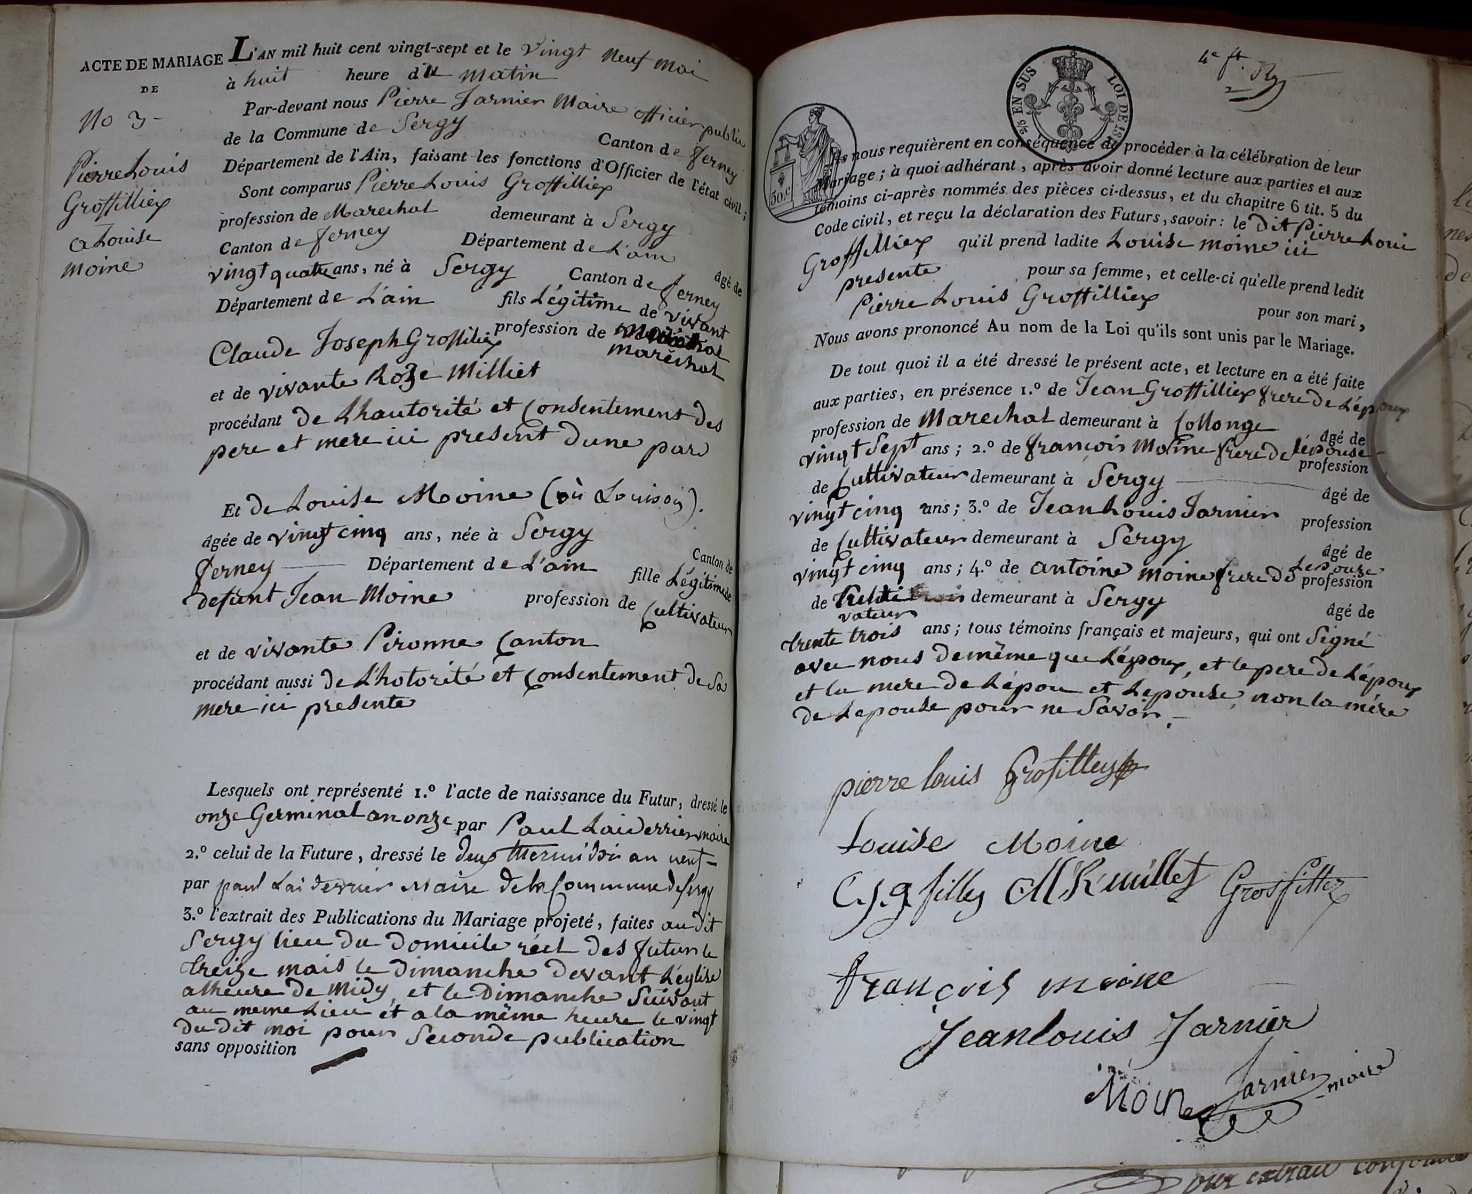 ACTE DE MARIAGE
DE
No 3
Pierre Louis
Groffilliex
& Louise
moine
L'AN mil huit cent vingt-sept et le vingt neuf mai
à huit heure du matin
Par-devant nous Pierre Jarnier Maire officier public
de la Commune de Sergy Canton de ferney
Département de l'Ain, faisant les fonctions d'Officier de l'état civil;
Sont comparus Pierre Louis Groffilliex
profession de Marechal demeurant à Sergy
Canton de ferney Département de L'ain âgé de
vingt quatre ans, né à Sergy Canton de ferney
Département de L'ain fils Légitime de vivant
Claude Joseph Groffilliex profession de
maréchal
et de vivante Roze Milliet
procédant de Lhautorité et Consentement des
pere et mere ici present dune par
Et de Louise Moine (où Louison).
âgée de vingt cinq ans, née à Sergy Canton de
ferney Département de L'ain fille Légitime de
defunt Jean Moine profession de Cultivateur
et de vivante Pironne Canton
procédant aussi de L'hotorité et Consentement de Sa
mere ici presente
Lesquels ont représenté 1.º l'acte de naissance du Futur, dressé le
onze Germinal an onze par Paul Laiderrier maire
2.º celui de la Future, dressé le deux thermidor an neuf
par paul Laiderrier Maire de la Commune de Sergy
3.º l'extrait des Publications du Mariage projeté, faites au dit
Sergy lieu du domicile réel des futur le
treize mais le Dimanche devant L'église
a lheure de Midy, et le Dimanche Suivant
au meme Lieu et a la même heure le vingt
du dit moi pour Seconde publication
sans opposition
EN SUS
LOI DE
50.c
4e ft
Ils nous requièrent en conséquence de procéder à la célébration de leur
Mariage; à quoi adhérant, après avoir donné lecture aux parties et aux
témoins ci-après nommés des pièces ci-dessus, et du chapitre 6 tit. 5 du
Code civil, et reçu la déclaration des Futurs, savoir: le dit Pierre Loui
Groffilliex qu'il prend ladite Louise moine ici
presente pour sa femme, et celle-ci qu'elle prend ledit
Pierre Louis Groffilliex pour son mari,
Nous avons prononcé Au nom de la Loi qu'ils sont unis par le Mariage.
De tout quoi il a été dressé le présent acte, et lecture en a été faite
aux parties, en présence 1.º de Jean Groffilliex frere de Lépoux
profession de Marechal demeurant à Collonge âgé de
vingt Sept ans; 2.º de françois Moine frere de Lépouse profession
de Cultivateur demeurant à Sergy âgé de
vingt cinq ans; 3.º de Jean Louis Jarnier profession
de Cultivateur demeurant à Sergy âgé de
vingt cinq ans; 4.º de antoine moine frere de Lepouse profession
de demeurant à Sergy âgé de
vateur
trente trois ans; tous témoins français et majeurs, qui ont Signé
avec nous de même que Lépoux, et le pere de Lépoux
et la mere de Lépou et Lepouse, non la mére
de Lepouse pour ne Savoir.
pierre louis Grofilley
Louise Moine
C. J. G filley M R millet Grosfillez
françois moine
Jean louis Jarnier
Moine Jarnier maire